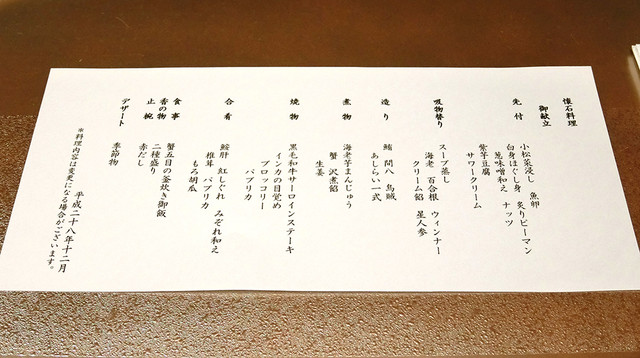 懐石料理
御献立
先付
小松菜浸し 魚卵
白身ほぐし身 炙りピーマン
葱味噌和え ナッツ
紫芋豆腐
サワークリーム
吸物替り
スープ蒸し
海老 百合根 ウィンナー
クリーム餡 星人参
造り
鮪 間八 烏賊
あしらい一式
煮物
海老芋まんじゅう
蟹 沢煮餡
生姜
焼物
黒毛和牛サーロインステーキ
インカの目覚め
ブロッコリー
パプリカ
合肴
鮟肝 紅しぐれ みぞれ和え
椎茸 パプリカ
もろ胡瓜
食事
蟹五目の釜炊き御飯
香の物
二種盛り
止椀
赤だし
デザート
季節物
平成二十八年十二月
※料理内容は変更になる場合がございます。